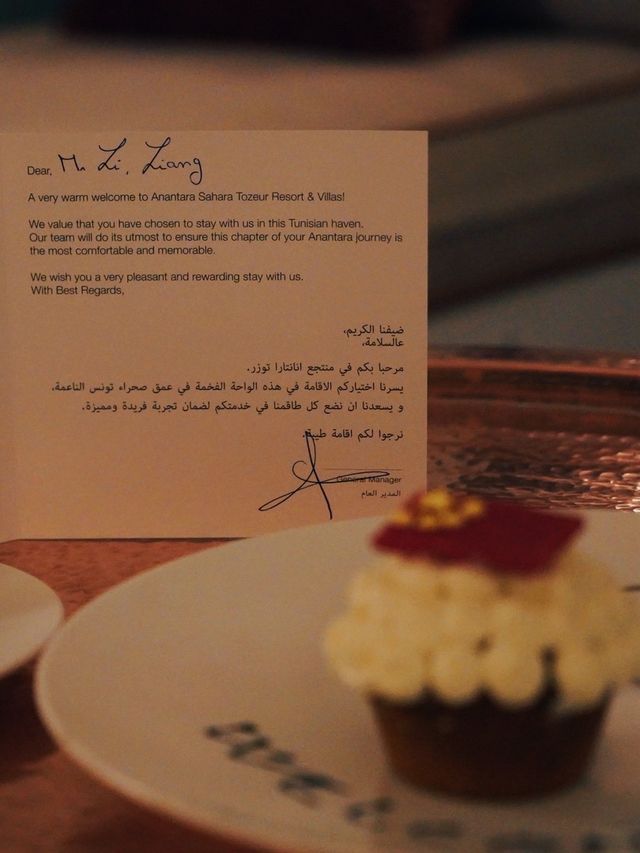 Dear, Mr Li, Liang
A very warm welcome to Anantara Sahara Tozeur Resort & Villas!
We value that you have chosen to stay with us in this Tunisian haven.
Our team will do its utmost to ensure this chapter of your Anantara journey is
the most comfortable and memorable.
We wish you a very pleasant and rewarding stay with us.
With Best Regards,
ضيفنا الكريم،
عالسلامة،
مرحبا بكم في منتجع انانتارا توزر.
يسرنا اختياركم الاقامة في هذه الواحة الفخمة في عمق صحراء تونس الناعمة،
و يسعدنا ان نضع كل طاقمنا في خدمتكم لضمان تجربة فريدة ومميزة.
نرجوا لكم اقامة طيبة.
General Manager
المدير العام